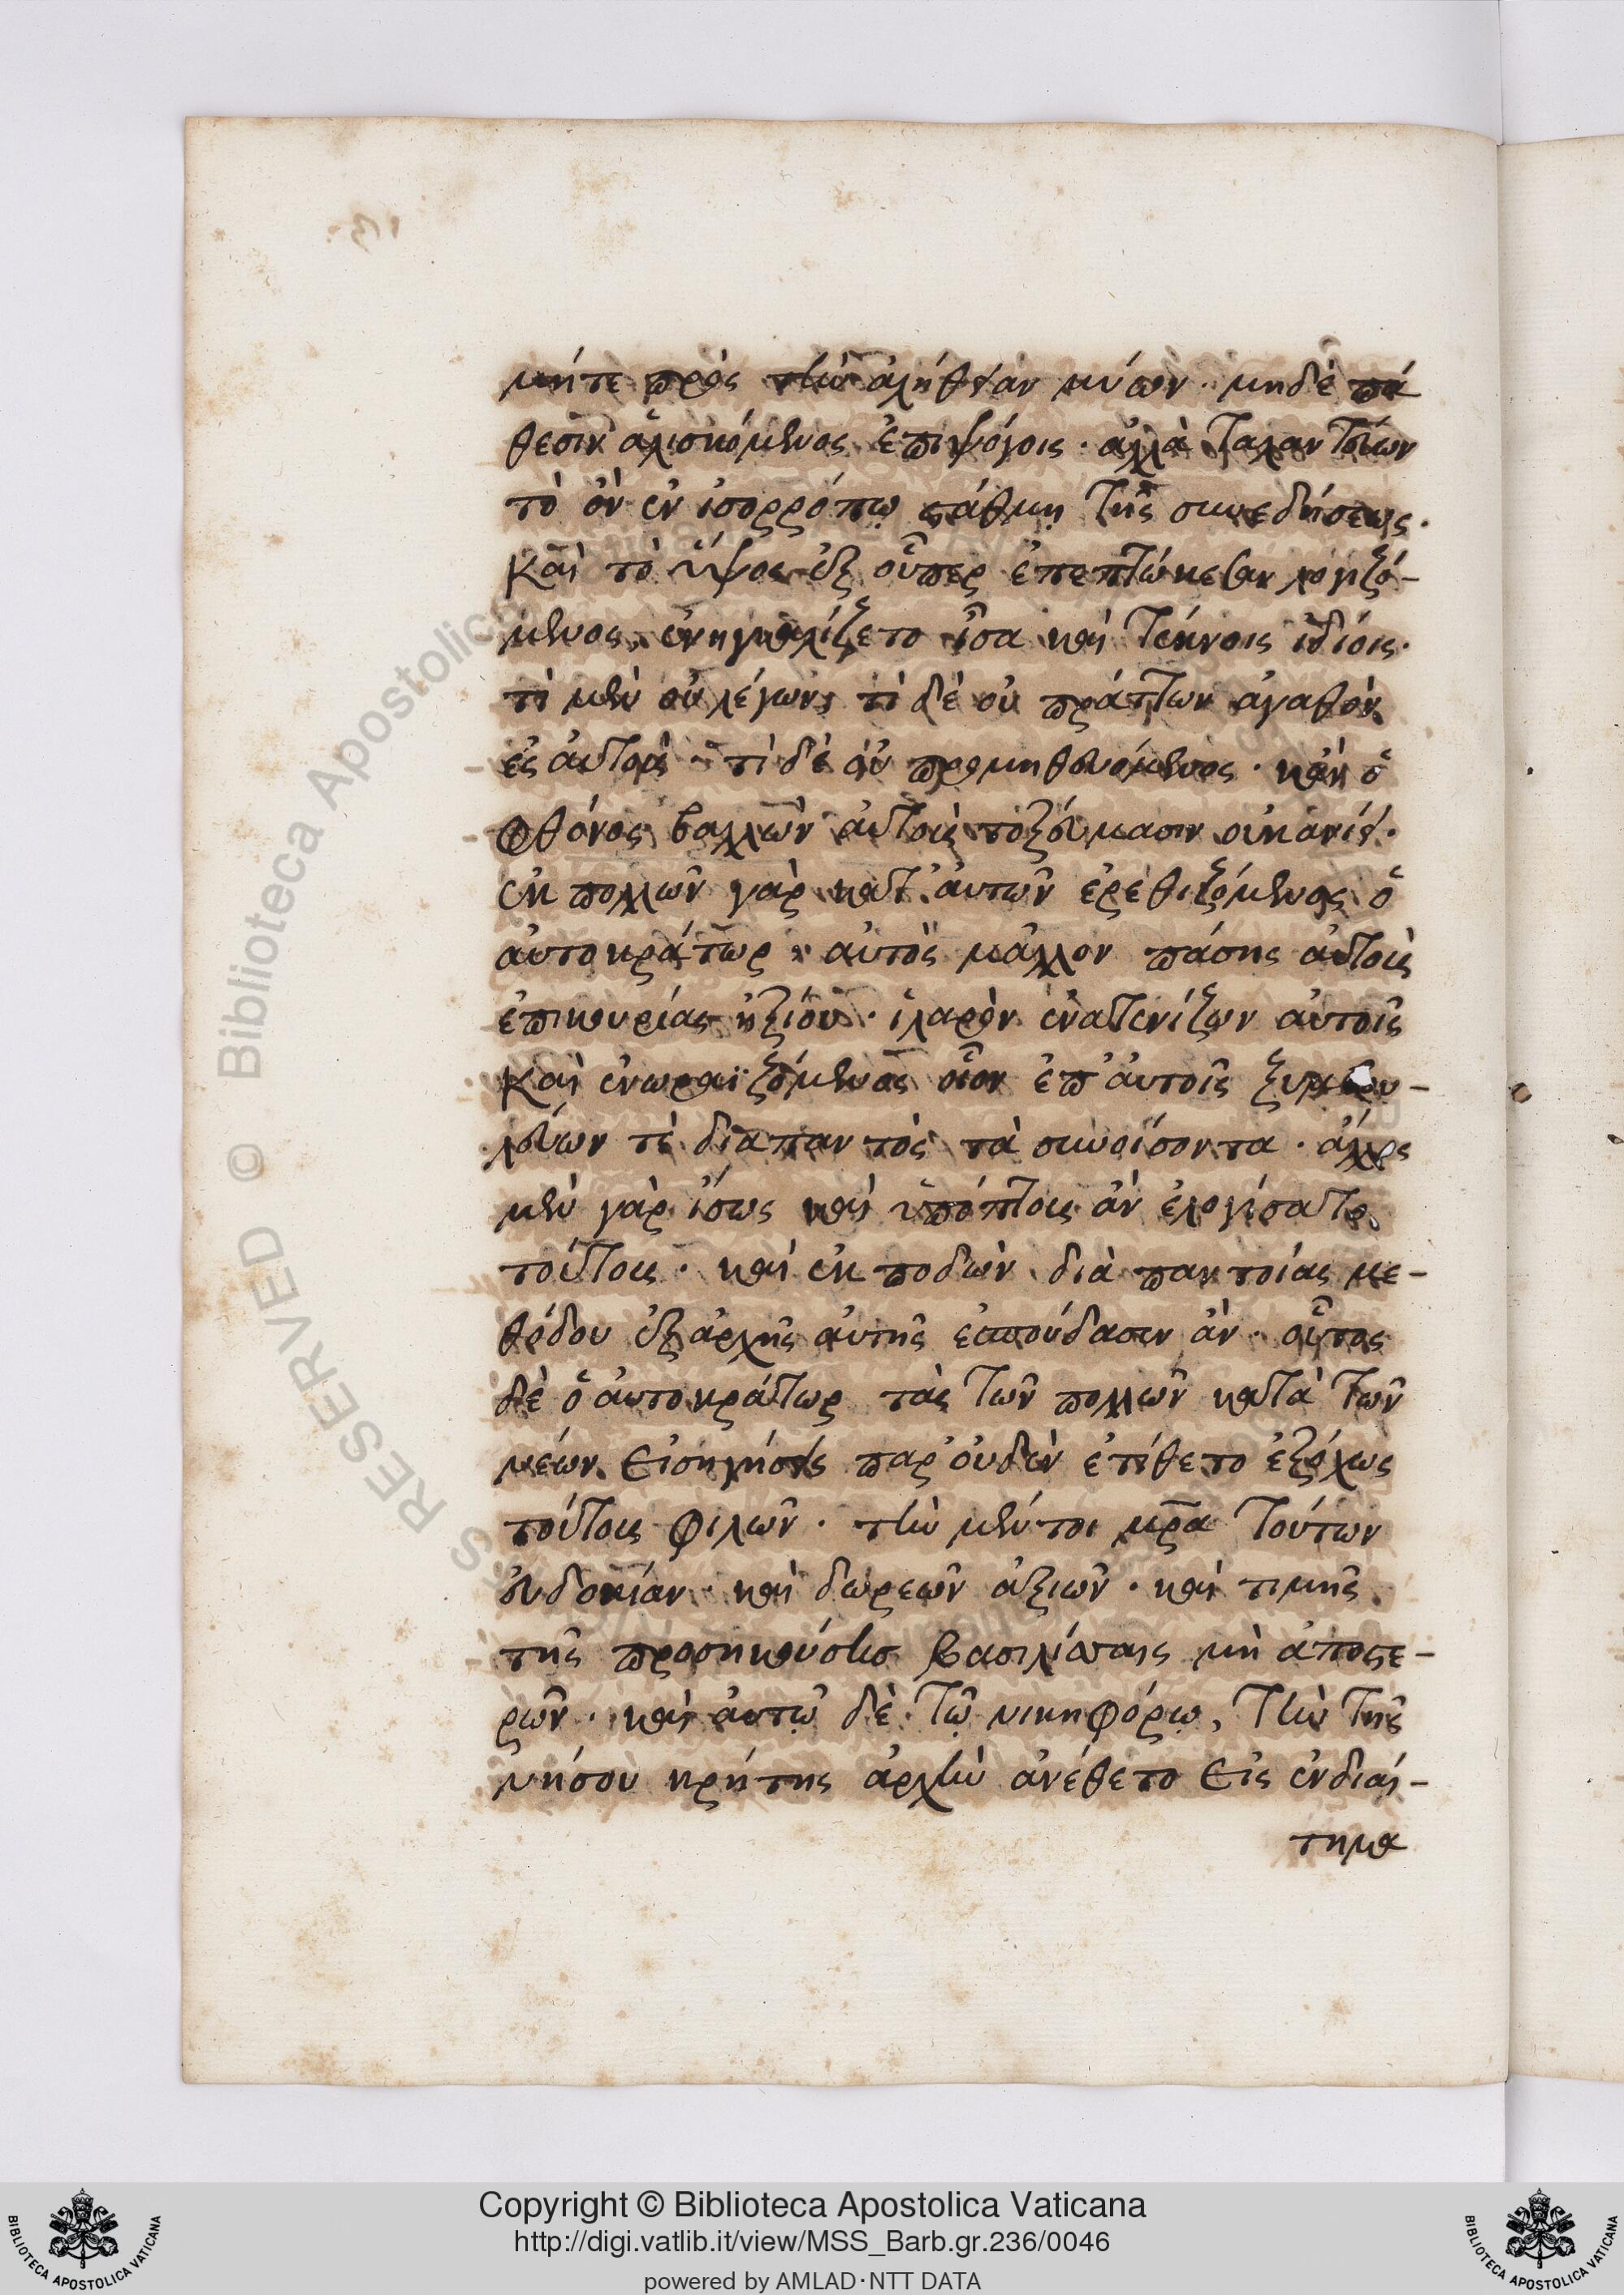 μήτε πρὸς τὴν ἀλήθειαν μύων· μηδὲ πά
θεσιν ἁλισκόμενος ἐπιψόγοις· ἀλλὰ ταλαντεύων
τὸ ὂν ἐν ἰσορρόπῳ στάθμῃ τῆς συνειδήσεως·
καὶ τὸ ὕψος ἐξ οὗπερ ἐπεπτώκεσαν λογιζό-
μενος, ἐνηγκαλίζετο ἴσα καὶ τέκνοις ἰδίοις·
τί μὲν οὐ λέγων; τί δὲ οὐ πράττων ἀγαθὸν
ἐς αὐτούς· τί δὲ οὐ προμηθευόμενος· κἂν ὁ
φθόνος βάλλων αὐτοὺς τοξεύμασιν οὐκ ἀνίει·
ἐκ πολλῶν γὰρ κατ' αὐτῶν ἐρεθιζόμενος ὁ
αὐτοκράτωρ, αὐτὸς μᾶλλον πάσης αὐτοὺς
ἐπικουρίας ἠξίου· ἱλαρὸν ἐνατενίζων αὐτοῖς
καὶ ἐνωραϊζόμενος οἷον ἐπ' αὐτοῖς
τὲ διαπαντὸς τὰ συνοίσοντα· ἄλλος
μὲν γὰρ ἴσως καὶ ὑπόπτους ἂν ἐλογίσατο
τούτους· καὶ ἐκ ποδὼν διὰ παντοίας με-
θόδου ἐξ ἀρχῆς αὐτῆς ἐσπούδασεν ἂν· οὗτος
δὲ ὁ αὐτοκράτωρ τὰς τῶν πολλῶν κατὰ τῶν
νέων εἰσηγήσεις παρ' οὐδὲν ἐτίθετο ἐξόχως
τούτους φιλῶν· τὴν μέντοι μρᾶ τούτων
εὐδοκίαν· καὶ δωρεῶν ἀξιῶν· καὶ τιμῆς
τῆς προσηκούσης βασιλίσσαις μὴ ἀποστε-
ρῶν· καὶ αὐτῷ δὲ τῷ νικηφόρῳ, τὴν τῆς
νήσου κρήτης ἀρχὴν ἀνέθετο εἰς ἐνδιαί-
τημα
Copyright © Biblioteca Apostolica Vaticana
http://digi.vatlib.it/view/MSS_Barb.gr.236/0046
powered by AMLAD·NTT DATA